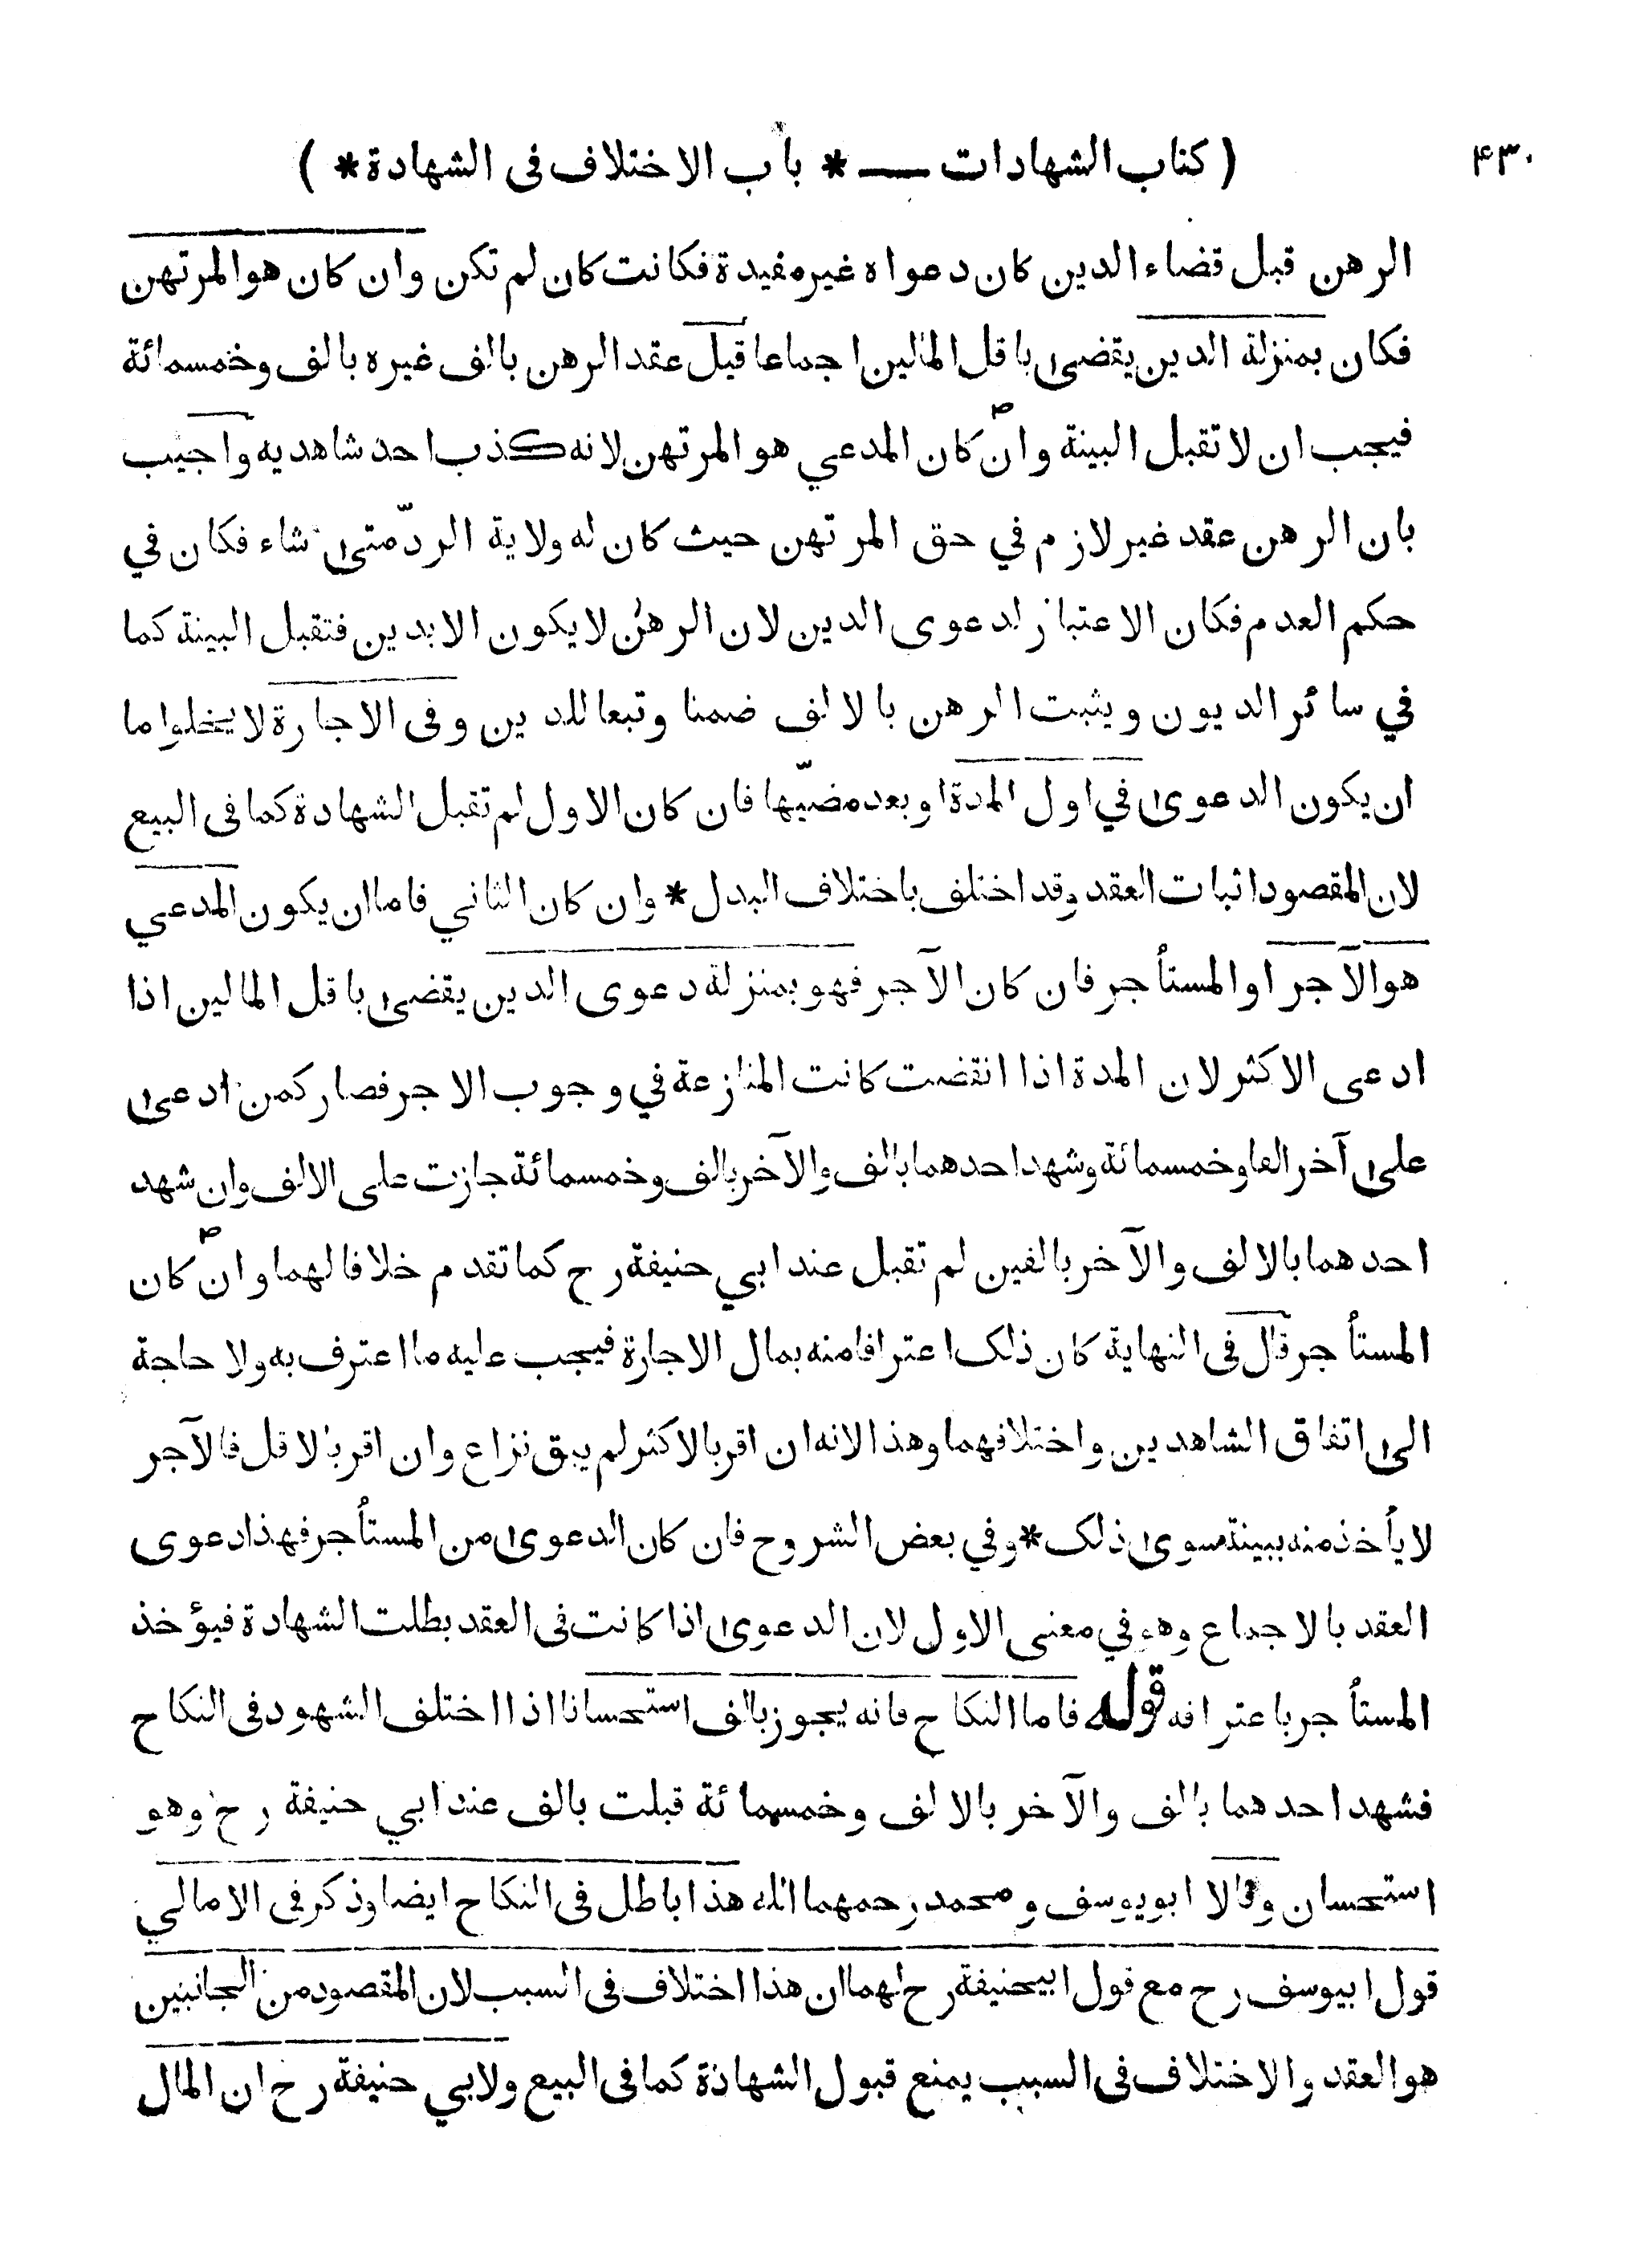 ۴۳۰ ( كتاب الشهادات — * باب الاختلاف فى الشهادة * )
الرهن قبل قضاء الدين كان دعواه غير مفيدة فكانت كان لم تكن وان كان هو المرتهن
فكان بمنزلة الدين يقضى باقل المالين اجماعا قيل عقد الرهن بالف غيره بالف وخمسمائة
فيجب ان لا تقبل البينة وان كان المدعي هو المرتهن لانه كذب احد شاهديه واجيب
بان الرهن عقد غير لازم في حق المرتهن حيث كان له ولاية الردّ متى شاء فكان في
حكم العدم فكان الاعتبار لدعوى الدين لان الرهن لا يكون الا بدين فتقبل البينة كما
في سائر الديون ويثبت الرهن بالالف ضمنا وتبعا للدين وفى الاجارة لا يخلوا ما
ان يكون الدعوى في اول المدة او بعد مضيّها فان كان الاول لم تقبل الشهادة كما فى البيع
لان المقصود اثبات العقد وقد اختلف باختلاف البدل * وان كان الثاني فاما ان يكون المدعي
هو الآجر او المستأجر فان كان الآجر فهو بمنزلة دعوى الدين يقضى باقل المالين اذا
ادعى الاكثر لان المدة اذا انقضت كانت المنازعة في وجوب الاجر فصار كمن ادعى
على آخر الفا وخمسمائة وشهد احدهما بالف والآخر بالف وخمسمائة جازت على الالف وان شهد
احدهما بالالف والآخر بالفين لم تقبل عند ابي حنيفة رح كما تقدم خلافا لهما وان كان
المستأجر قال فى النهاية كان ذلك اعترافا منه بمال الاجارة فيجب عليه ما اعترف به ولا حاجة
الى اتفاق الشاهدين واختلافهما وهذا لانه ان اقر بالاكثر لم يبق نزاع وان اقر بالاقل فالآجر
لا يأخذ منه ببينة سوى ذلك * وفي بعض الشروح فان كان الدعوى من المستأجر فهذا دعوى
العقد بالاجماع وهو في معنى الاول لان الدعوى اذا كانت فى العقد بطلت الشهادة فيؤخذ
المستأجر باعترافه قوله فاما النكاح فانه يجوز بالف استحسانا اذا اختلف الشهود فى النكاح
فشهد احدهما بالف والآخر بالالف وخمسمائة قبلت بالف عند ابي حنيفة رح وهو
استحسان وقالا ابو يوسف ومحمد رحمهما الله هذا باطل فى النكاح ايضا وذكر فى الامالي
قول ابيوسف رح مع قول ابيحنيفة رح لهما ان هذا اختلاف فى السبب لان المقصود من الجانبين
هو العقد والاختلاف فى السبب يمنع قبول الشهادة كما فى البيع ولابي حنيفة رح ان المال